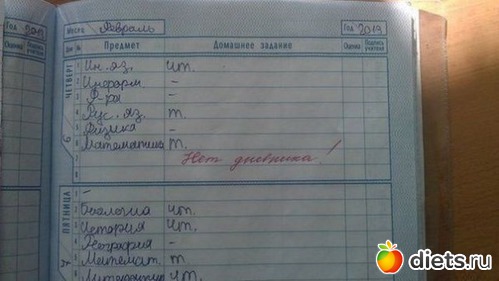 Год 2013
Месяц Февраль
Год 2013
Оценка Подпись учителя
Дни № Предмет Домашнее задание Оценка Подпись учителя
ЧЕТВЕРГ
1 Ин. яз. чт.
2 Информ -
3 Ф-ра -
4 Рус. яз. т.
5 Физика -
6 Математика т.
7 Нет дневника!
8
ПЯТНИЦА
1 -
2 Биология чт.
3 История чт.
4 География -
5 Математ. т
6 Литература чт.
diets.ru